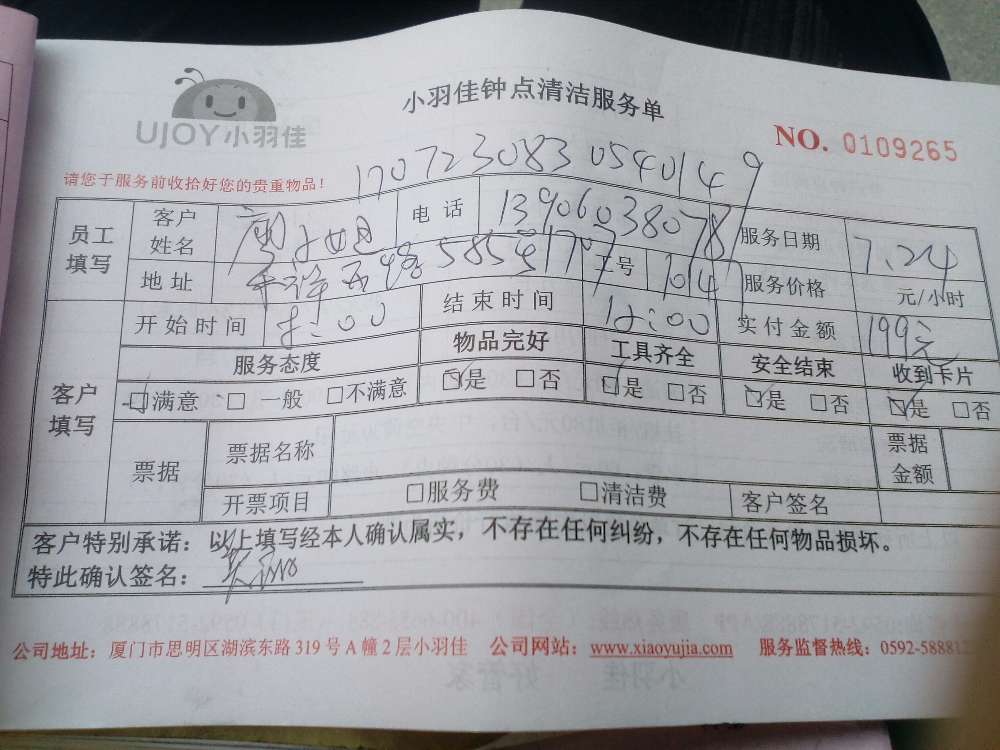 UJOY小羽佳
小羽佳钟点清洁服务单
NO. 0109265
1707230830540149
请您于服务前收拾好您的贵重物品！
员工填写 客户姓名 电话 13906038078 服务日期 7.24
地址 工号 1047 服务价格 元/小时
客户填写 开始时间 8:00 结束时间 12:00 实付金额 199元
服务态度 物品完好 工具齐全 安全结束 收到卡片
☑满意 □一般 □不满意 ☑是 □否 ☑是 □否 ☑是 □否 ☑是 □否
票据 票据名称 票据金额
开票项目 □服务费 □清洁费 客户签名
客户特别承诺：以上填写经本人确认属实，不存在任何纠纷，不存在任何物品损坏。
特此确认签名：
公司地址：厦门市思明区湖滨东路319号A幢2层小羽佳 公司网站：www.xiaoyujia.com 服务监督热线：0592-58881